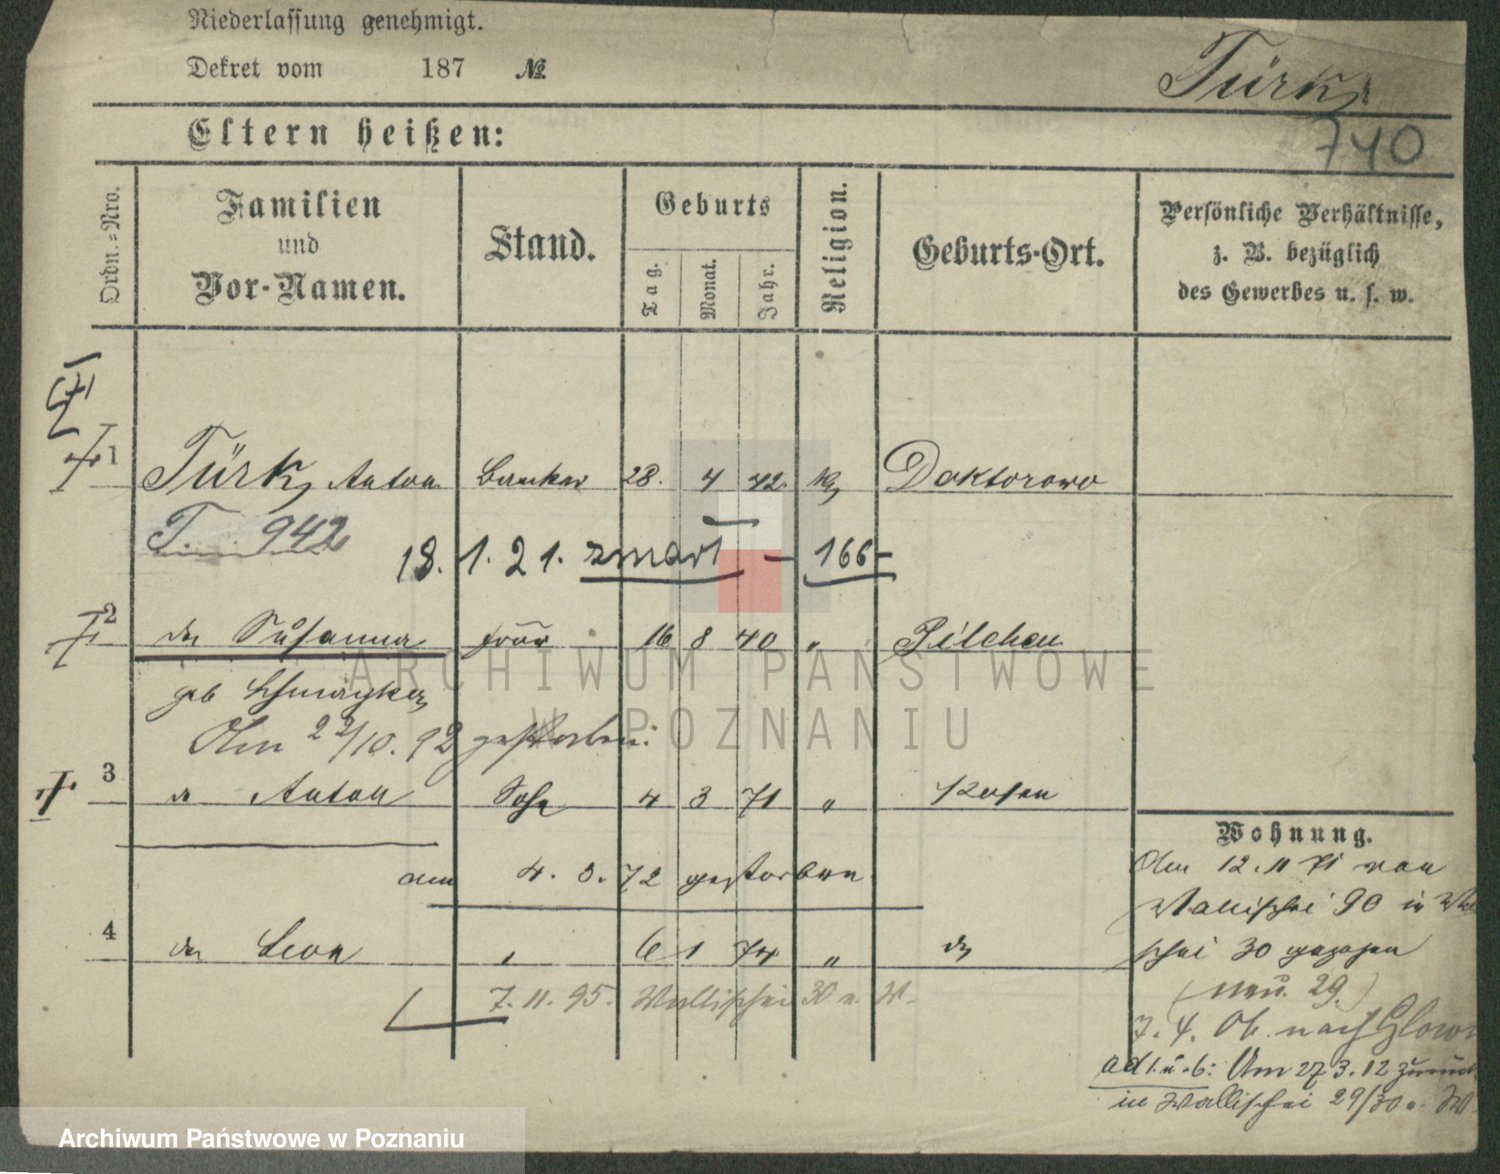 Niederlassung genehmigt.
Dekret vom 187 №
Türk
740
Eltern heißen:
Ordn.=Nro.
Familien
und
Vor-Namen.
Stand.
Geburts
Tag.
Monat.
Jahr.
Religion.
Geburts-Ort.
Persönliche Verhältnisse,
z. B. bezüglich
des Gewerbes u. s. w.
1 Türk, Anton 28. 4 42 k Doktorowo
T. 942
18. 1. 21. zmarł - 166 -
2 Susanna Frau 16 8 40 " Pilchen
geb
Am 22/10. 92 gestorben.
3 Anton Sohn 4 3 71 " Posen
am 4. 3. 72 gestorben
4 Leon 6 1 74 "
7. 11. 95. Wallischei 30 u. W.
Wohnung.
Am 12. 11 71 von
Wallischei 90 in Wal
schei 30 gezogen
(neu. 29.)
7. 4. 06. nach Glow
ad 1. u. 6: Am 27 3. 12 zurück
in Wallischei 29/30 W
ARCHIWUM PAŃSTWOWE
W POZNANIU
Archiwum Państwowe w Poznaniu